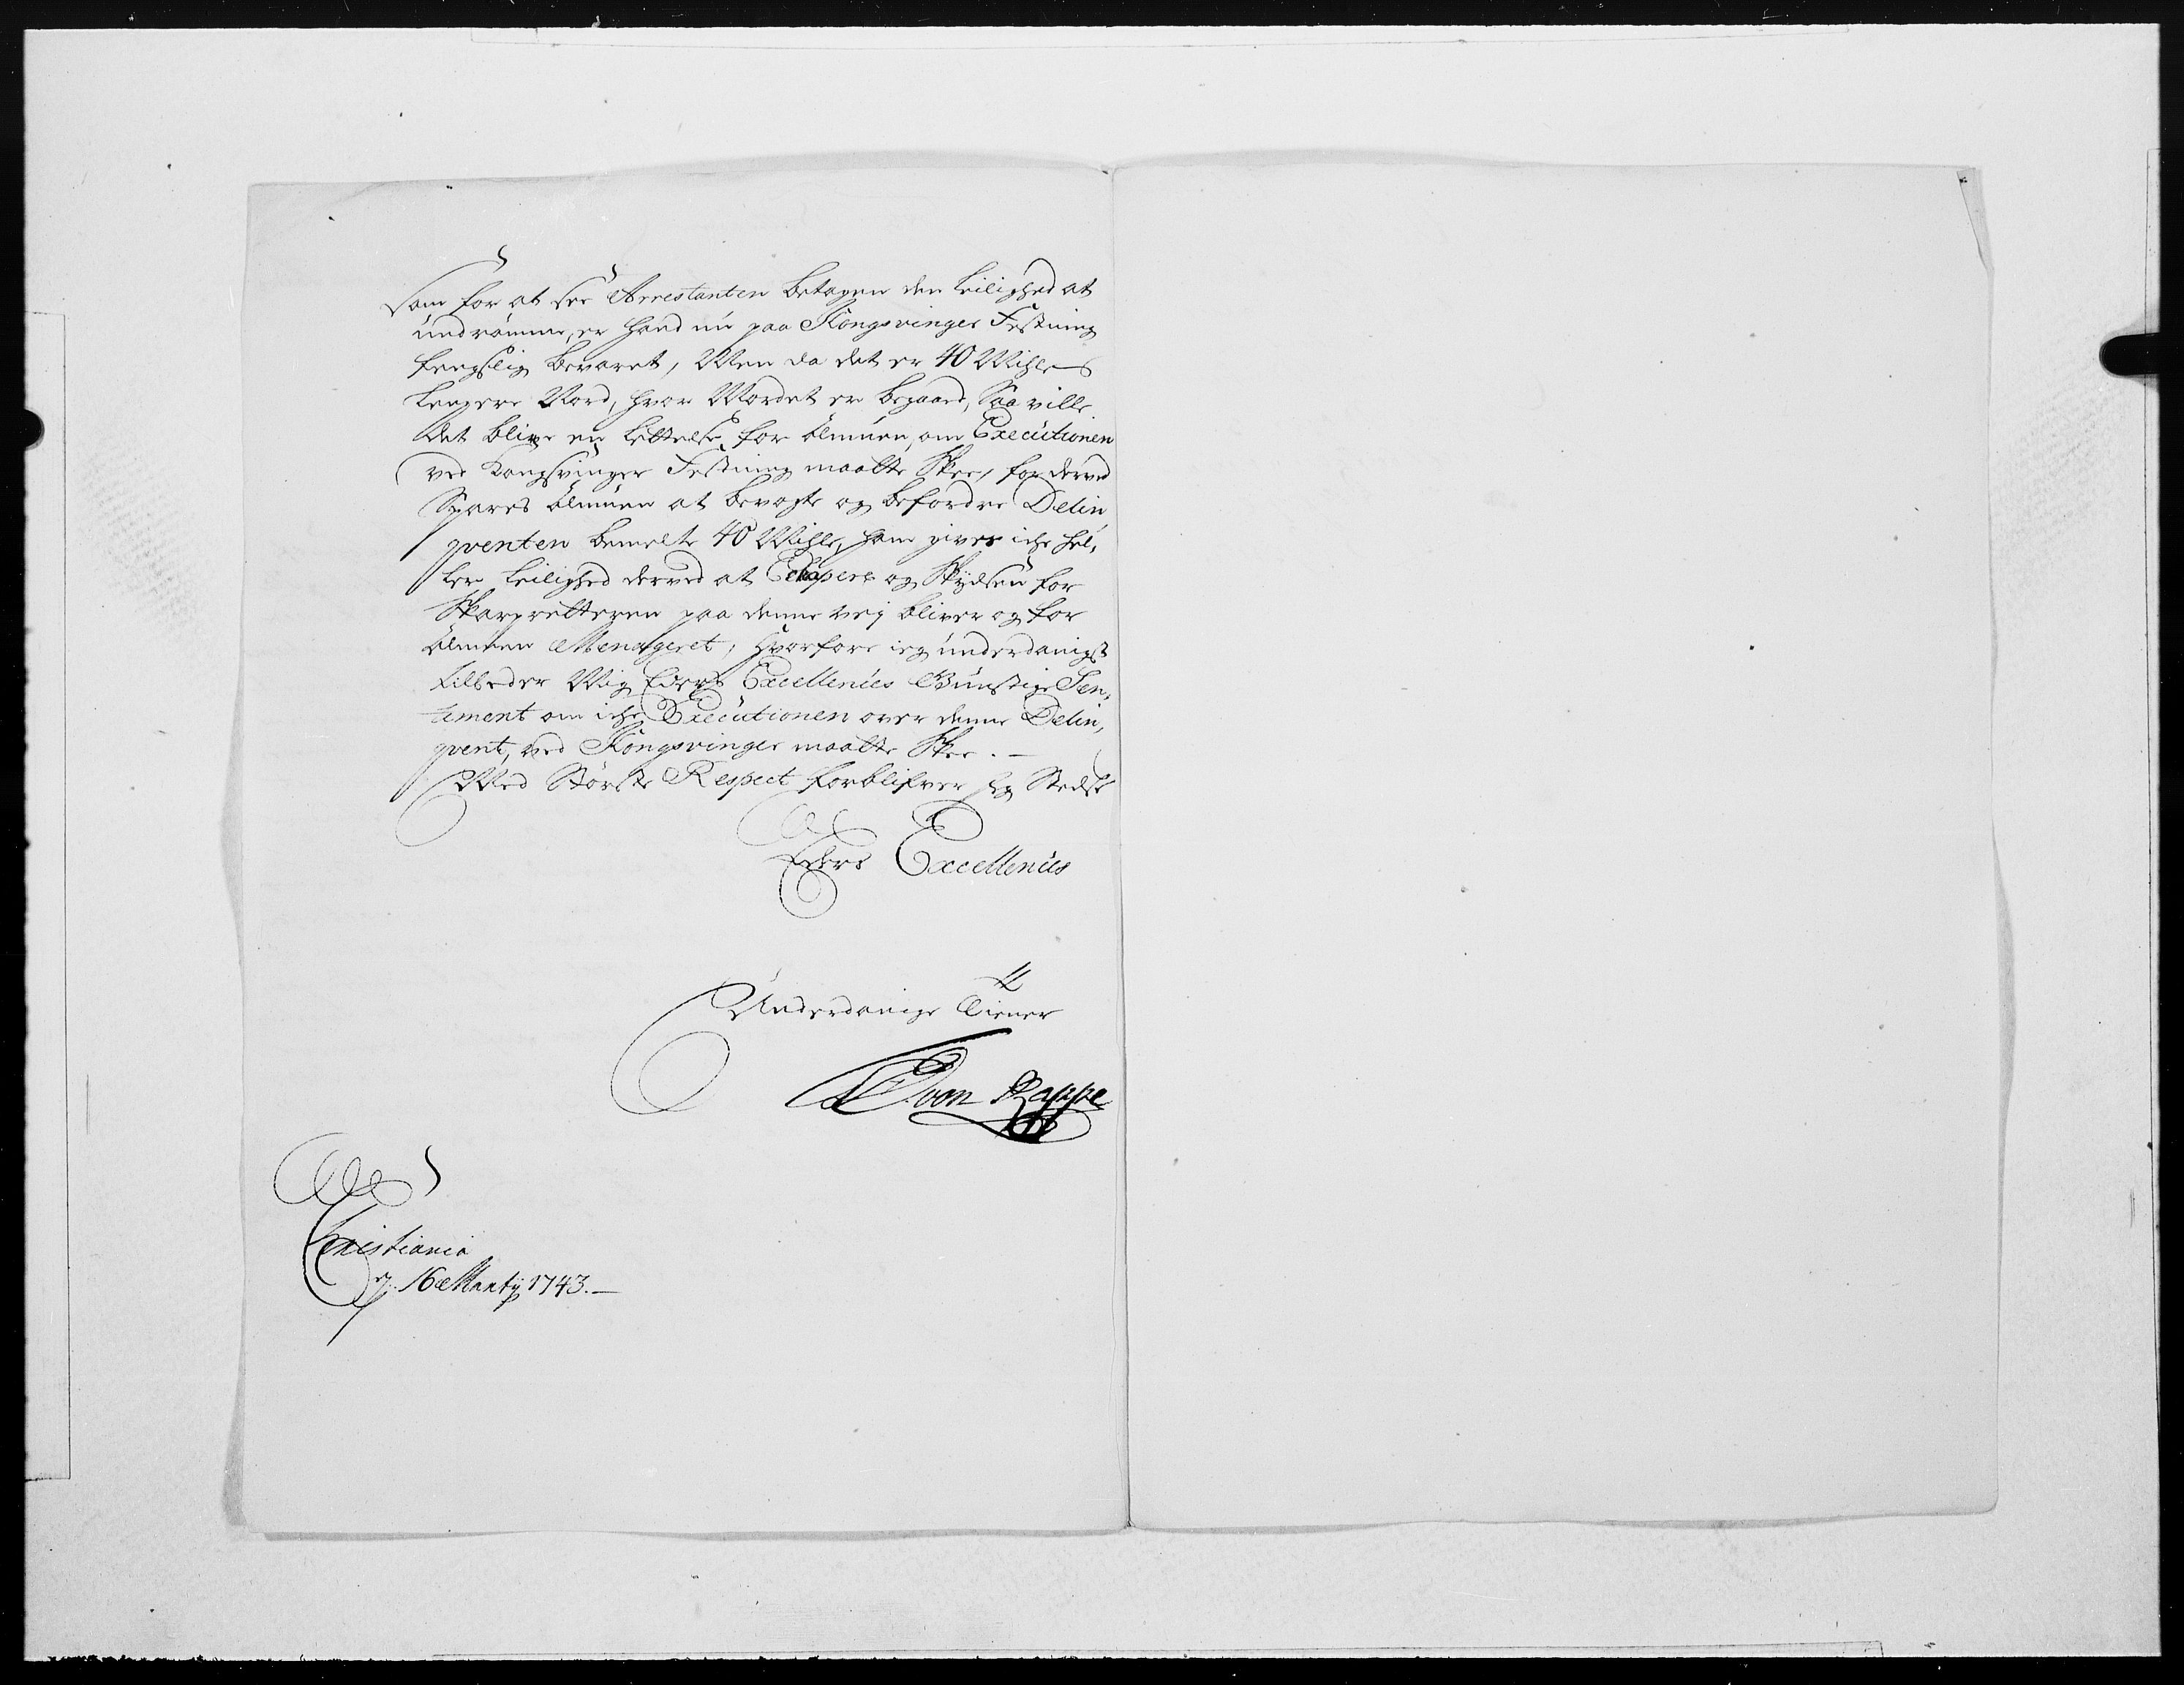 Som for at see Arrestanten betagen den Leilighed at
undrømme, er hand nu paa Kongsvinger Festning
fengslig bevaret, Men da det er 40 Mihle
lengere Nord, hvor Mordet er begaaed, Saa ville
det blive en lettelse for Almuen, om Executionen
ved Kongsvinger Festning maatte Skee, for derved
Spares Almuen at bevogte og befordre Delin,
qventen bemelte 40 Mihle, ham gives iche hel,
ler Leilighed derved at Echapere og Skydsen for
Skarpretteren paa denne veij bliver og for
Almuen Menageret, hvorfore ieg underdanigst
tilbeder Mig Eders Excellences Gunstige Sen,
timent om iche Executionen over denne Delin,
qvent, ved Kongsvinger maatte Skee. —
Med Største Respect forblifver ieg Stedse
Eders Excellences
Underdanige Tiener
von Rappe
Christiania
d. 16 Martij 1743. —